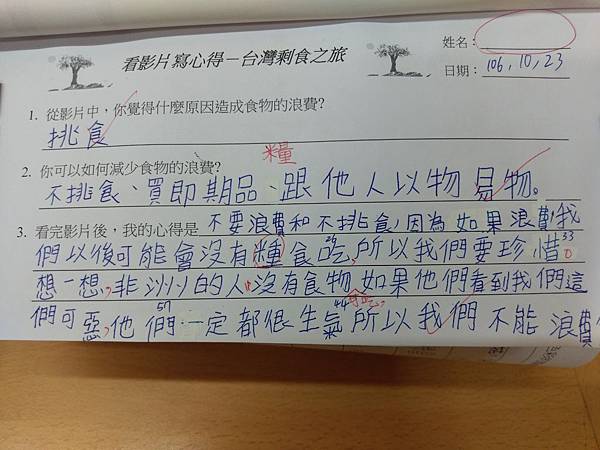 看影片寫心得－台灣剩食之旅
姓名：
日期：106,10,23
1. 從影片中，你覺得什麼原因造成食物的浪費?
挑食
2. 你可以如何減少食物的浪費?
糧
不挑食、買即期品、跟他人以物易物。
3. 看完影片後，我的心得是 不要浪費和不挑食，因為如果浪費，我
們以後可能會沒有種食吃，所以我們要珍惜。
想一想，非洲的人沒有食物，如果他們看到我們這
們可惡，他們一定都很生氣，所以我們不能浪費